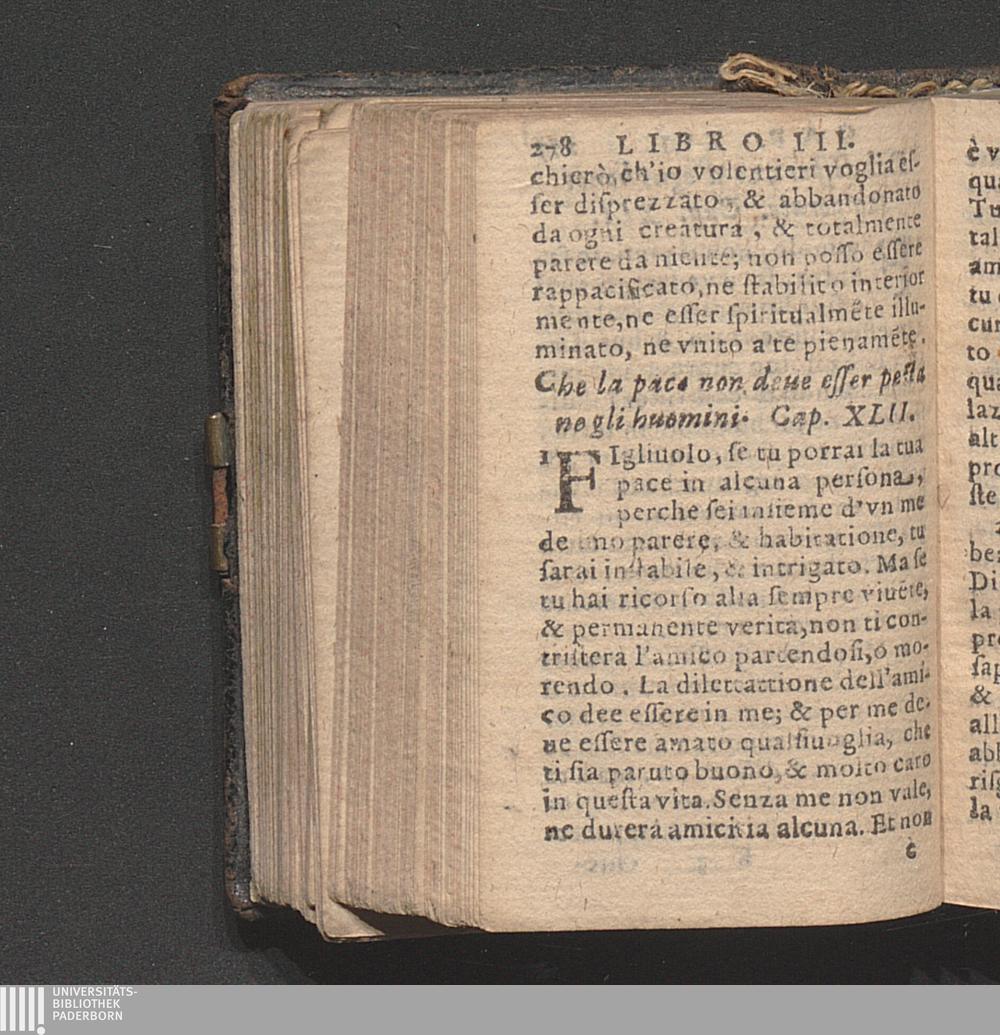 278 LIBRO III.
chierò, ch'io volentieri voglia eſ-
ſer diſprezzato, & abbandonato
da ogni creatura, & totalmente
parere da niente; non poſſo eſſere
rappacificato, ne ſtabilito interior
mente, ne eſſer ſpiritualmẽte illu-
minato, ne vnito a te pienamẽte.
Che la pace non deue eſſer poſta
ne gli huomini. Cap. XLII.
1 FIgliuolo, ſe tu porrai la tua
pace in alcuna perſona,
perche ſei inſieme d'vn me
deſimo parere, & habitatione, tu
ſarai inſtabile, & intrigato. Ma ſe
tu hai ricorſo alla ſempre viuẽte,
& permanente verità, non ti con-
triſterà l'amico partendoſi, o mo-
rendo. La dilettattione dell'ami-
co dee eſſere in me; & per me de-
ue eſſere amato qualſiuoglia, che
ti ſia paruto buono, & molto caro
in queſta vita. Senza me non vale,
ne durerà amicitia alcuna. Et non
è
è v
qua
Tu
tal
am
tu
cur
to
qua
laz
alt
pro
ſte
be
Di
la
pre
ſap
&
all
abb
riſg
la
UNIVERSITÄTS-
BIBLIOTHEK
PADERBORN